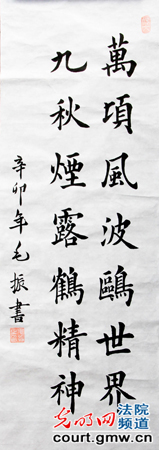 萬頃風波鷗世界
九秋煙露鶴精神
辛卯年毛振書
光明网
法院
频道
court.gmw.cn